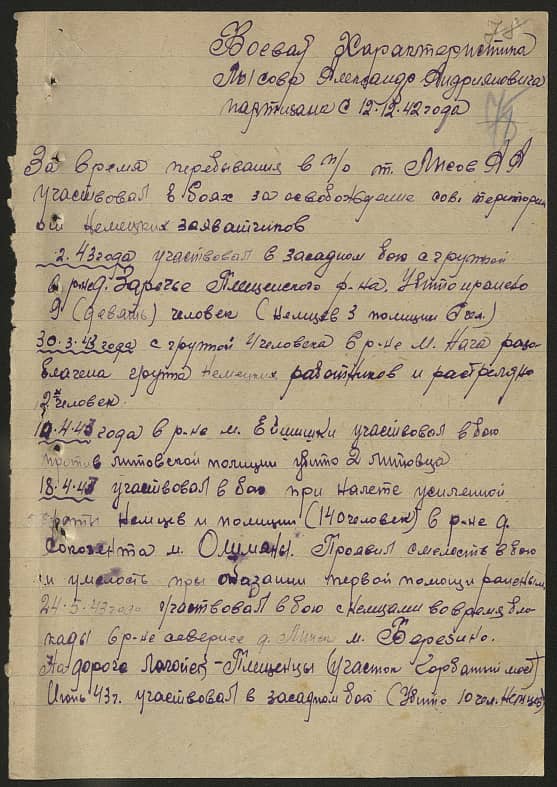 78
Боевая Характеристика
Лысова Александр Андрияновича
партизана с 12.12.42 года
За время пребывания в п/о т. Лысов А А
участвовал в боях за освобождение сов. территории
от немецких захватчиков
2.43 года участвовал в засадном бою с группой
в р-не д. Заречье Плещенского р-на. Убито и ранено
9 (девять) человек (немцев 3 полиции 6 чел.)
30.3.43 года с группой 4 человека в р-не м. Нача разо-
блачена группа немецких работников и расстреляно
2 человек.
4.43 года в р-не м. Ейшишки участвовал в бою
против литовской полиции убито 2 литовца
18.4.43 участвовал в бою при налете усиленной
роты немцев и полиции (140 человек) в р-не д.
м. Олуманы. Проявил смелость в бою
и умелость при оказании первой помощи раненым
24.5.43 года участвовал в бою с немцами во время бло-
кады в р-не севернее д. м. Березино.
На дороге Логойск-Плещенцы (участок мост)
Июнь 43 г. участвовал в засадном бою (Убито 10 чел. немцев)